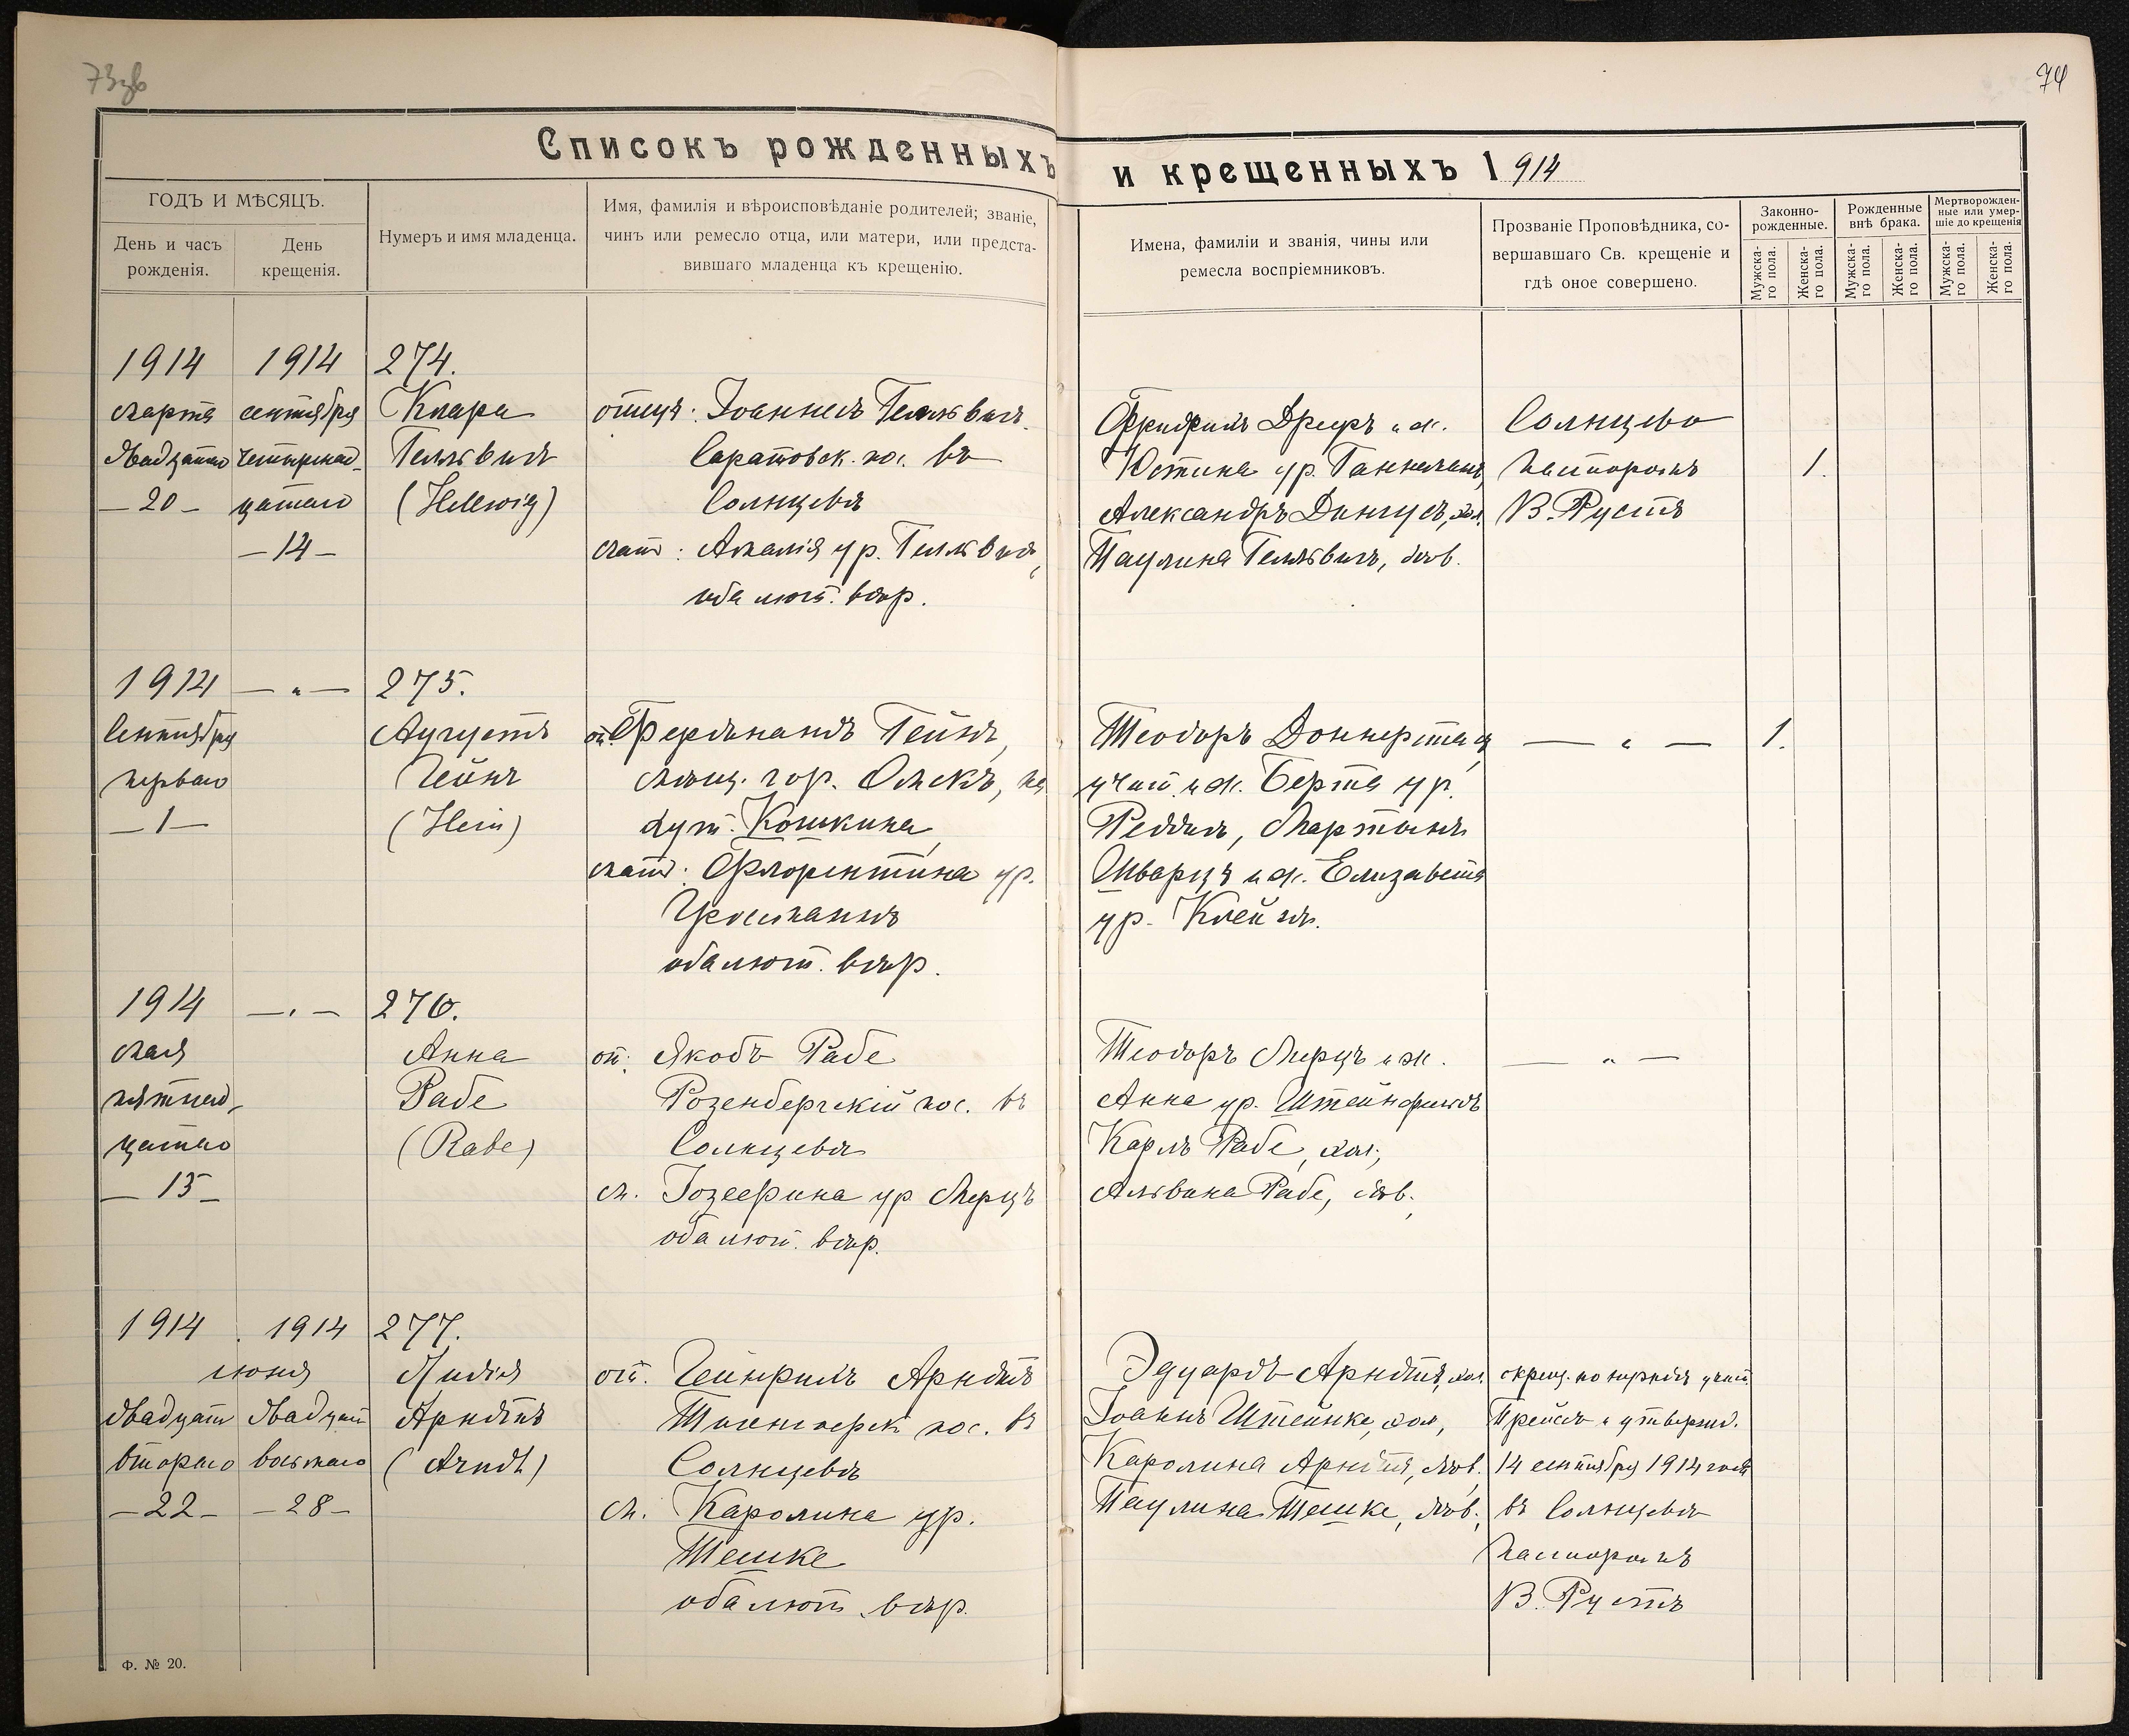 73об
74
Списокъ рожденныхъ и крещенныхъ 1914
ГОДЪ И МѢСЯЦЪ.
День и часъ рожденія.
День крещенія.
Нумеръ и имя младенца.
Имя, фамилія и вѣроисповѣданіе родителей; званіе,
чинъ или ремесло отца, или матери, или предста-
вившаго младенца къ крещенію.
Имена, фамиліи и званія, чины или
ремесла воспріемниковъ.
Прозваніе Проповѣдника, со-
вершавшаго Св. крещеніе и
гдѣ оное совершено.
Законно-
рожденные.
Рожденные
внѣ брака.
Мертворожден-
ные или умер-
шіе до крещенія
Мужска-
го пола.
Женска-
го пола.
Мужска-
го пола.
Женска-
го пола.
Мужска-
го пола.
Женска-
го пола.
1914
марта
двадцатаго
— 20 —
1914
сентября
четырнад-
цатаго
— 14 —
274.
Клара
Гельвигъ
(Hellwig)
отецъ: Іоаннесъ Гельвигъ
Саратовск. пос. въ
Солнцевѣ
мать: Амалія ур. Гельвигъ,
оба лют. вѣр.
Фридрихъ Дрееръ и ж.
Юстина ур. Ганнеманъ,
Александръ Дингесъ, хол.
Паулина Гельвигъ, дѣв.
Солнцево
пасторомъ
В. Рустъ
1.
1914
Сентября
перваго
— 1 —
— „ —
275.
Аугустъ
Гейнъ
(Hein)
от. Фердинандъ Гейнъ,
мѣщ. гор. Омскъ, на
хут. Кошкина,
мать: Флорентина ур.
оба лют. вѣр.
Теодоръ Доннерштагъ,
учит. и ж. Берта ур.
Реддигъ, Мартинъ
Шварцъ и ж. Елизавета
ур. Клейнъ.
— „ —
1.
1914
мая
пятнад-
цатаго
— 15 —
— „ —
276.
Анна
Рабе
(Rabe)
от: Якобъ Рабе
Розенбергскій пос. въ
Солнцевѣ
м. Іозефина ур. Мерцъ
оба лют. вѣр.
Теодоръ Мерцъ и ж.
Анна ур.
Карлъ Рабе, хол.,
Альвина Рабе, дѣв.
— „ —
1914
1914
іюня
двадцать
втораго
— 22 —
двадцать
восьмаго
— 28 —
277.
Лидія
Арндтъ
(Arndt)
от. Гейнрихъ Арндтъ
пос. въ
Солнцевѣ
м. Каролина ур.
Тешке
оба лют. вѣр.
Эдуардъ Арндтъ, хол.
Іоаннъ Штейнке, хол.,
Каролина Арндтъ, дѣв.
Паулина Тешке, дѣв.,
окрещ. по нуждѣ учит.
и утвержд.
14 сентября 1914 года
въ Солнцевѣ
пасторомъ
В. Рустъ
Ф. № 20.